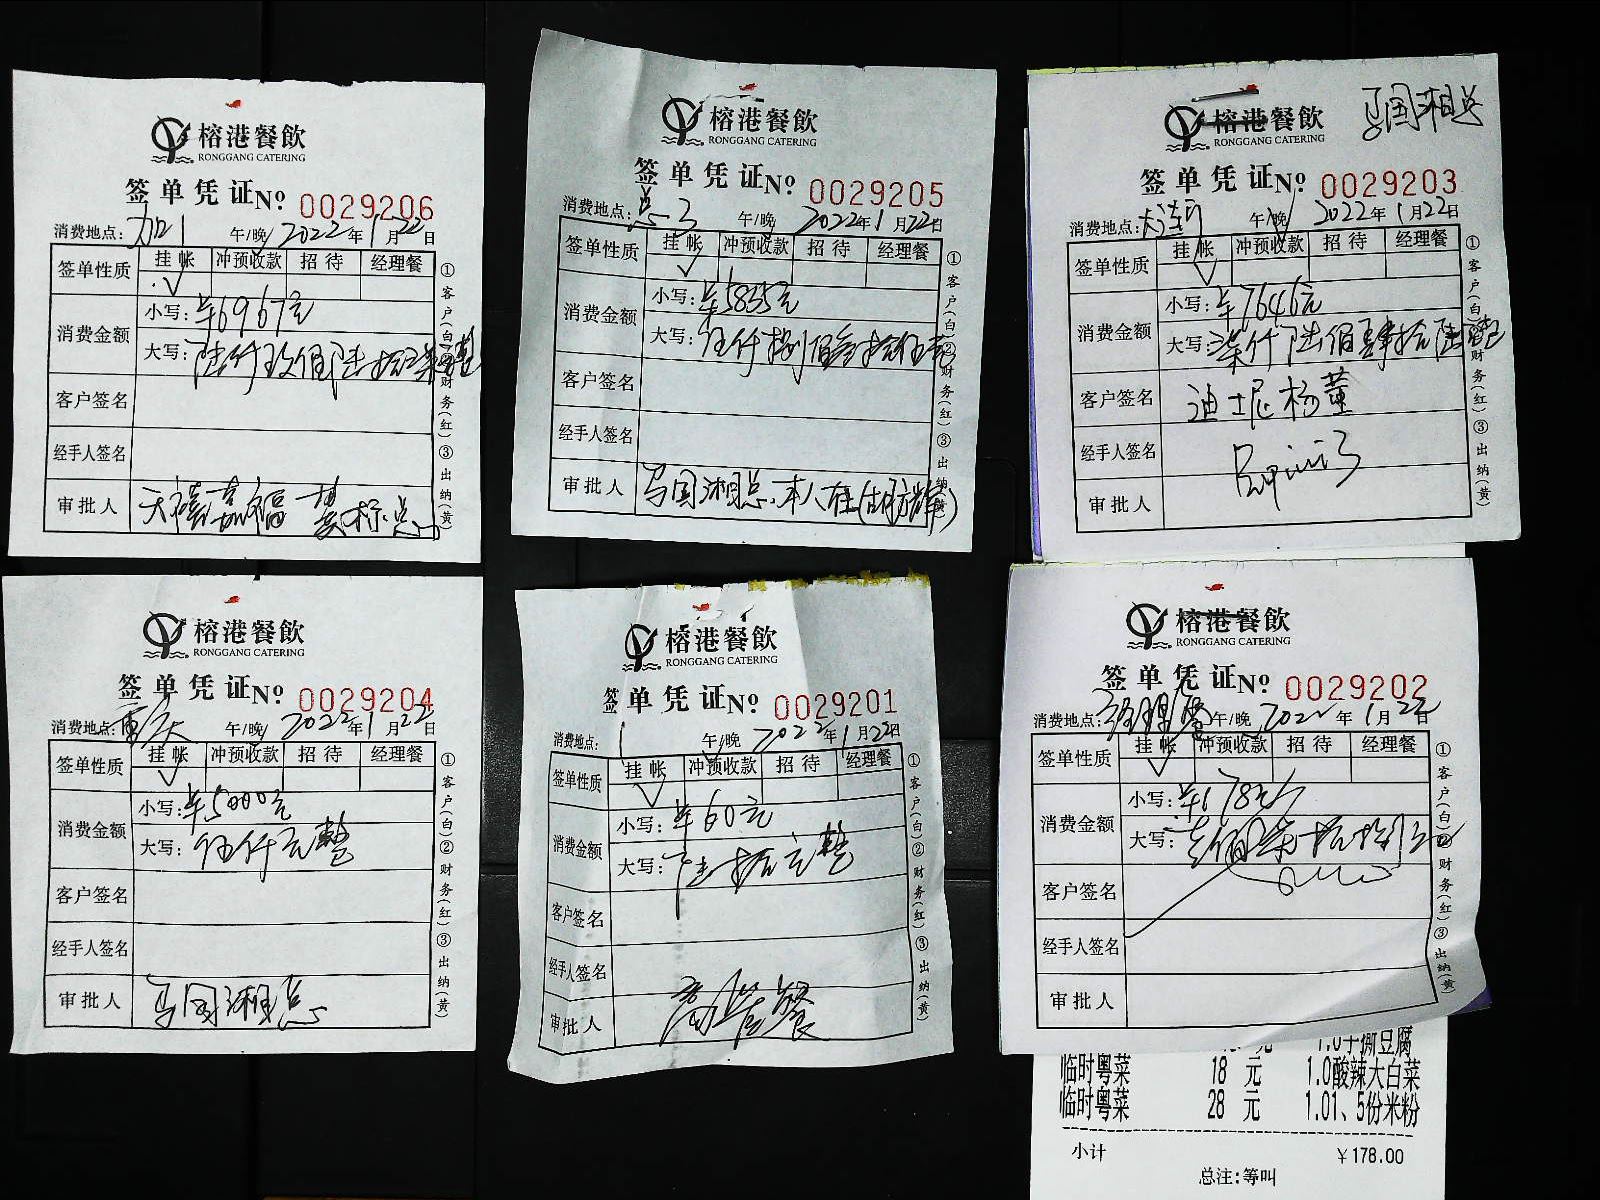 榕港餐飲
RONGGANG CATERING
签单凭证 Nº 0029206
消费地点: 加1 午/晚 2022年1月22日
签单性质 挂帐 冲预收款 招待 经理餐
√
消费金额
小写: ¥6967元
大写: 陆仟玖佰陆拾柒元整
客户签名
经手人签名
审批人 天禧嘉福
①客户(白)②财务(红)③出纳(黄)
榕港餐飲
RONGGANG CATERING
签单凭证 Nº 0029205
消费地点: 总3 午/晚 2022年1月22日
签单性质 挂帐 冲预收款 招待 经理餐
√
消费金额
小写: ¥5835元
大写: 伍仟捌佰叁拾伍元
客户签名
经手人签名
审批人 马国湘总.本人在
①客户(白)②财务(红)③出纳(黄)
马国湘总
榕港餐飲
RONGGANG CATERING
签单凭证 Nº 0029203
消费地点: 大连厅 午/晚 2022年1月22日
签单性质 挂帐 冲预收款 招待 经理餐
√
消费金额
小写: ¥7646元
大写: 柒仟陆佰肆拾陆元整
客户签名 迪士尼杨董
经手人签名
审批人
①客户(白)②财务(红)③出纳(黄)
榕港餐飲
RONGGANG CATERING
签单凭证 Nº 0029204
消费地点: 重庆 午/晚 2022年1月22日
签单性质 挂帐 冲预收款 招待 经理餐
√
消费金额
小写: ¥5000元
大写: 伍仟元整
客户签名
经手人签名
审批人 马国湘总
①客户(白)②财务(红)③出纳(黄)
榕港餐飲
RONGGANG CATERING
签单凭证 Nº 0029201
消费地点: 1 午/晚 2022年1月22日
签单性质 挂帐 冲预收款 招待 经理餐
√
消费金额
小写: ¥60元
大写: 陆拾元整
客户签名
经手人签名
审批人 高管餐
①客户(白)②财务(红)③出纳(黄)
榕港餐飲
RONGGANG CATERING
签单凭证 Nº 0029202
消费地点: 经理餐 午/晚 2022年1月22日
签单性质 挂帐 冲预收款 招待 经理餐
√
消费金额
小写: ¥178元
大写: 壹佰柒拾捌元
客户签名
经手人签名
审批人
①客户(白)②财务(红)③出纳(黄)
元 1.0手撕豆腐
临时粤菜 18 元 1.0酸辣大白菜
临时粤菜 28 元 1.01、5份米粉
小计 ¥178.00
总注:等叫